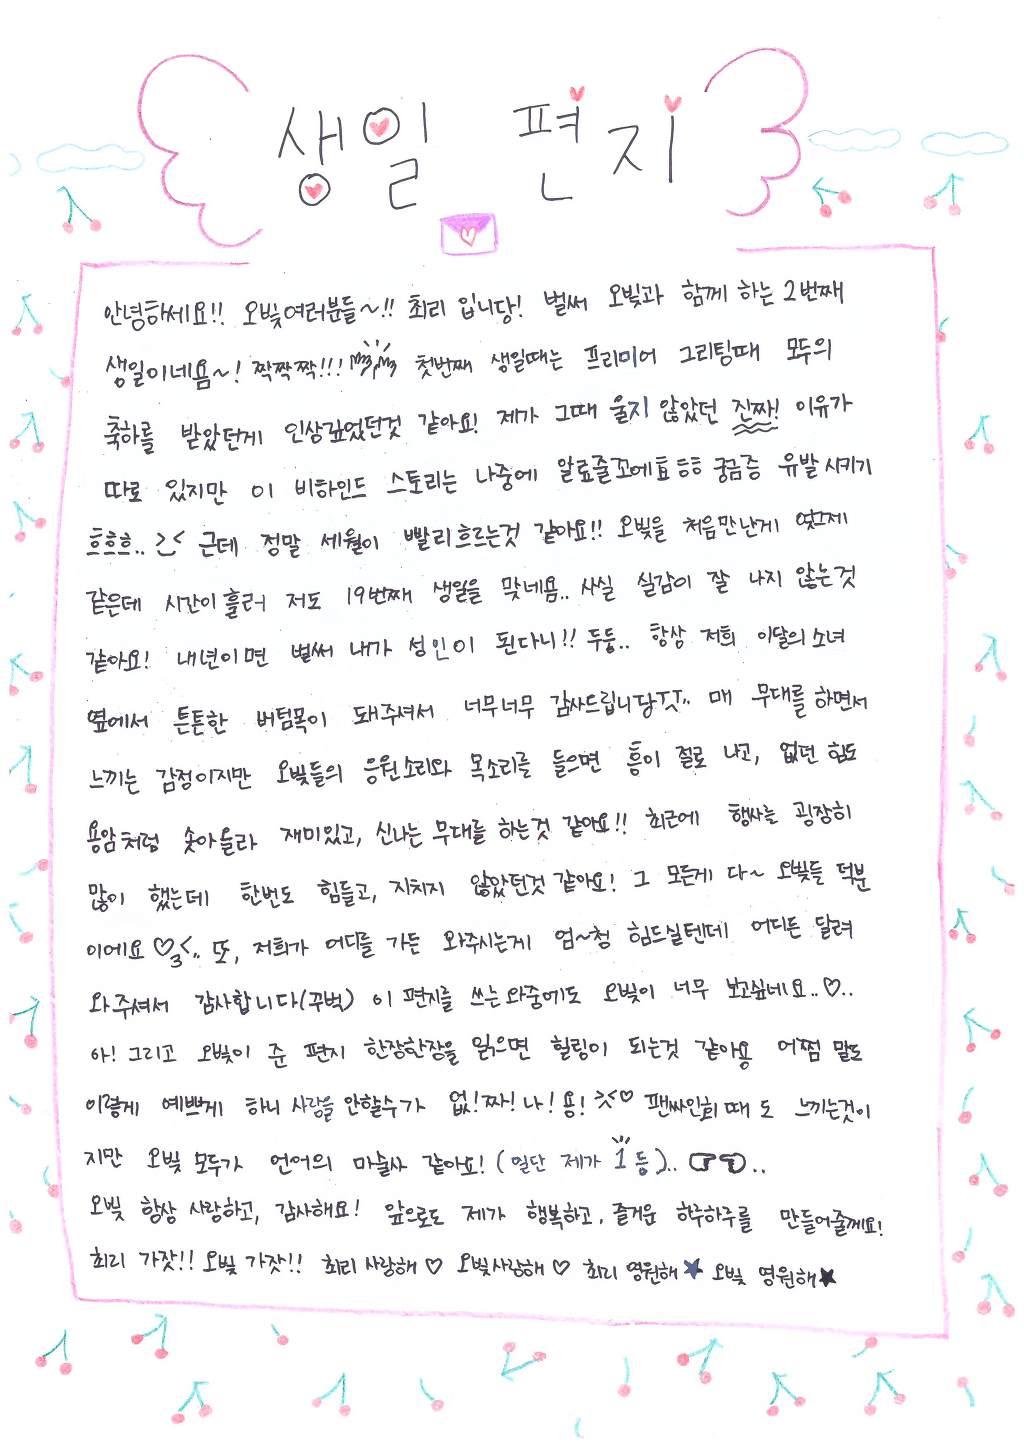 생일 편지
안녕하세요!! 오빛여러분들~!! 최리 입니당! 벌써 오빛과 함께 하는 2번째
생일이네욤~! 짝짝짝!!! 첫번째 생일때는 프리미어 그리팅때 모두의
축하를 받았던게 인상깊었던것 같아요! 제가 그때 울지 않았던 진짜! 이유가
따로 있지만 이 비하인드 스토리는 나중에 알료줄꼬에효 흠흠 궁금증 유발시키기
흐흐흐.. 근데 정말 세월이 빨리흐르는것 같아요!! 오빛을 처음만난게 엊그제
같은데 시간이 흘러 저도 19번째 생일을 맞네욤.. 사실 실감이 잘 나지 않는것
같아요! 내년이면 벌써 내가 성인이 된다니!! 두둥.. 항상 저희 이달의소녀
옆에서 튼튼한 버팀목이 돼주셔서 너무너무 감사드립니당ㅠㅠ.. 매 무대를 하면서
느끼는 감정이지만 오빛들의 응원소리와 목소리를 들으면 흥이 절로 나고, 없던 힘도
용암처럼 솟아올라 재미있고, 신나는 무대를 하는것 같아요!! 최근에 행사를 굉장히
많이 했는데 한번도 힘들고, 지치지 않았던것 같아요! 그 모든게 다~ 오빛들 덕분
이에요♡.. 또, 저희가 어디를 가든 와주시는게 엄~청 힘드실텐데 어디든 달려
와주셔서 감사합니다(꾸벅) 이 편지를 쓰는와중에도 오빛이 너무 보고싶네요..♡..
아! 그리고 오빛이 준 편지 한장한장을 읽으면 힐링이 되는것 같아용 어쩜 말도
이렇게 예쁘게 하니 사랑을 안할수가 없!짜!나!용!♡ 팬싸인회때도 느끼는것이
지만 오빛 모두가 언어의 마술사 같아요! (일단 제가 1등)..
오빛 항상 사랑하고, 감사해요! 앞으로도 제가 행복하고, 즐거운 하루하루를 만들어줄께요!
최리 가잣!! 오빛 가잣!! 최리 사랑해♡ 오빛사랑해♡ 최리 영원해★ 오빛 영원해★